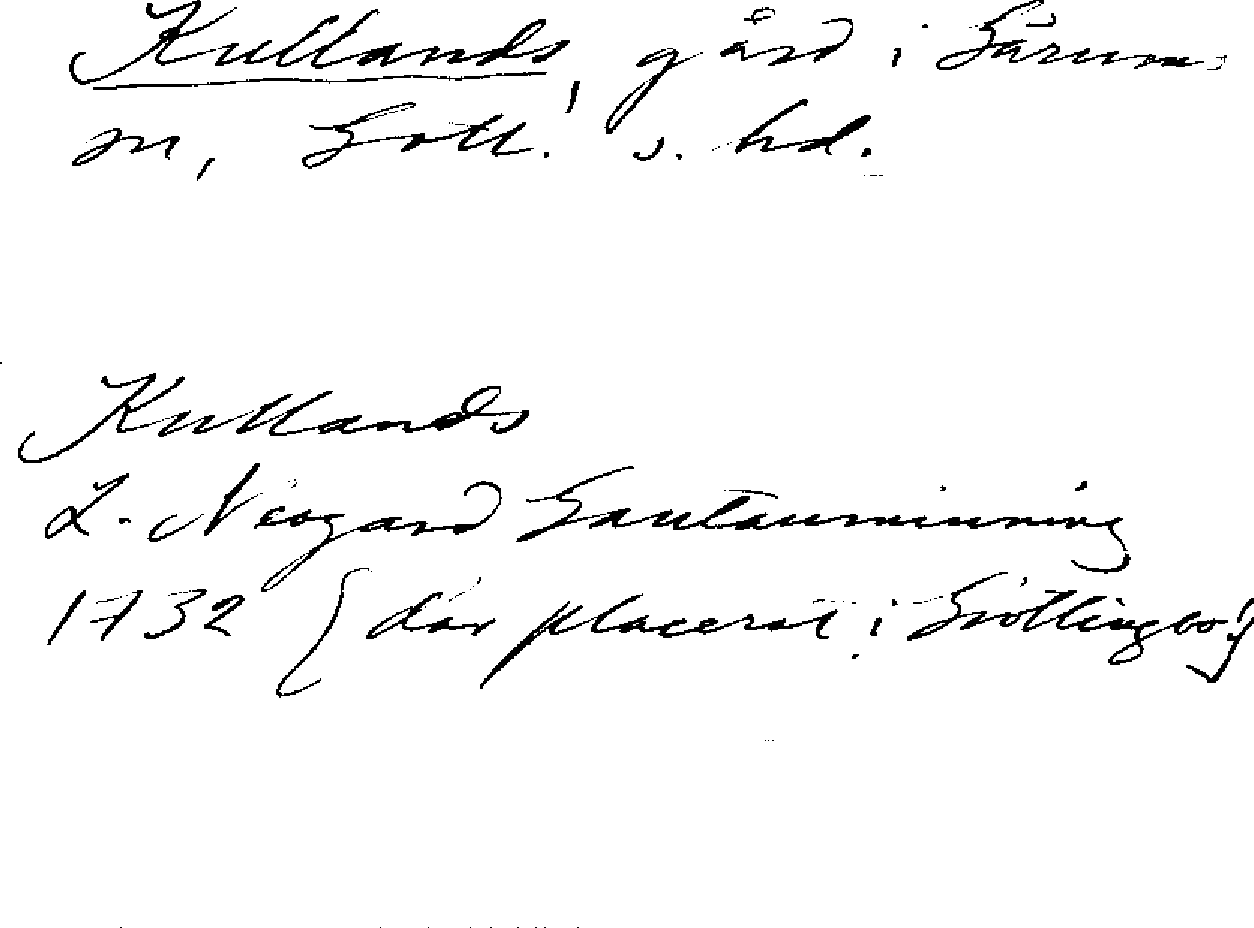 Kullands, gård i Gärum
sn, Gotl. s. hd.
Kullands
L. Neogard Gautauminning
1732 (där placerat i Grötlingbo!)